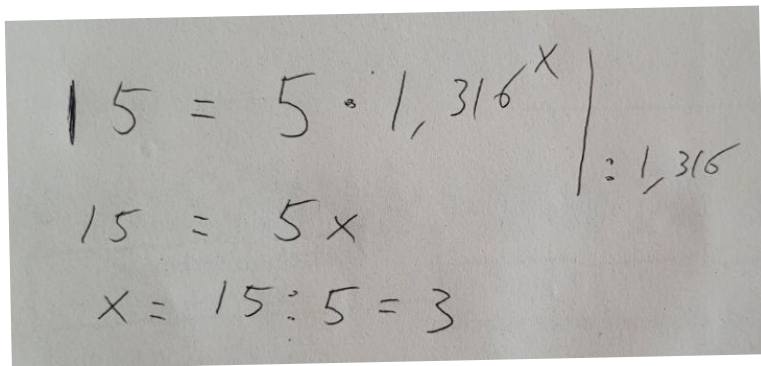 15 = 5 · 1,316^x | : 1,316
15 = 5x
x = 15 : 5 = 3